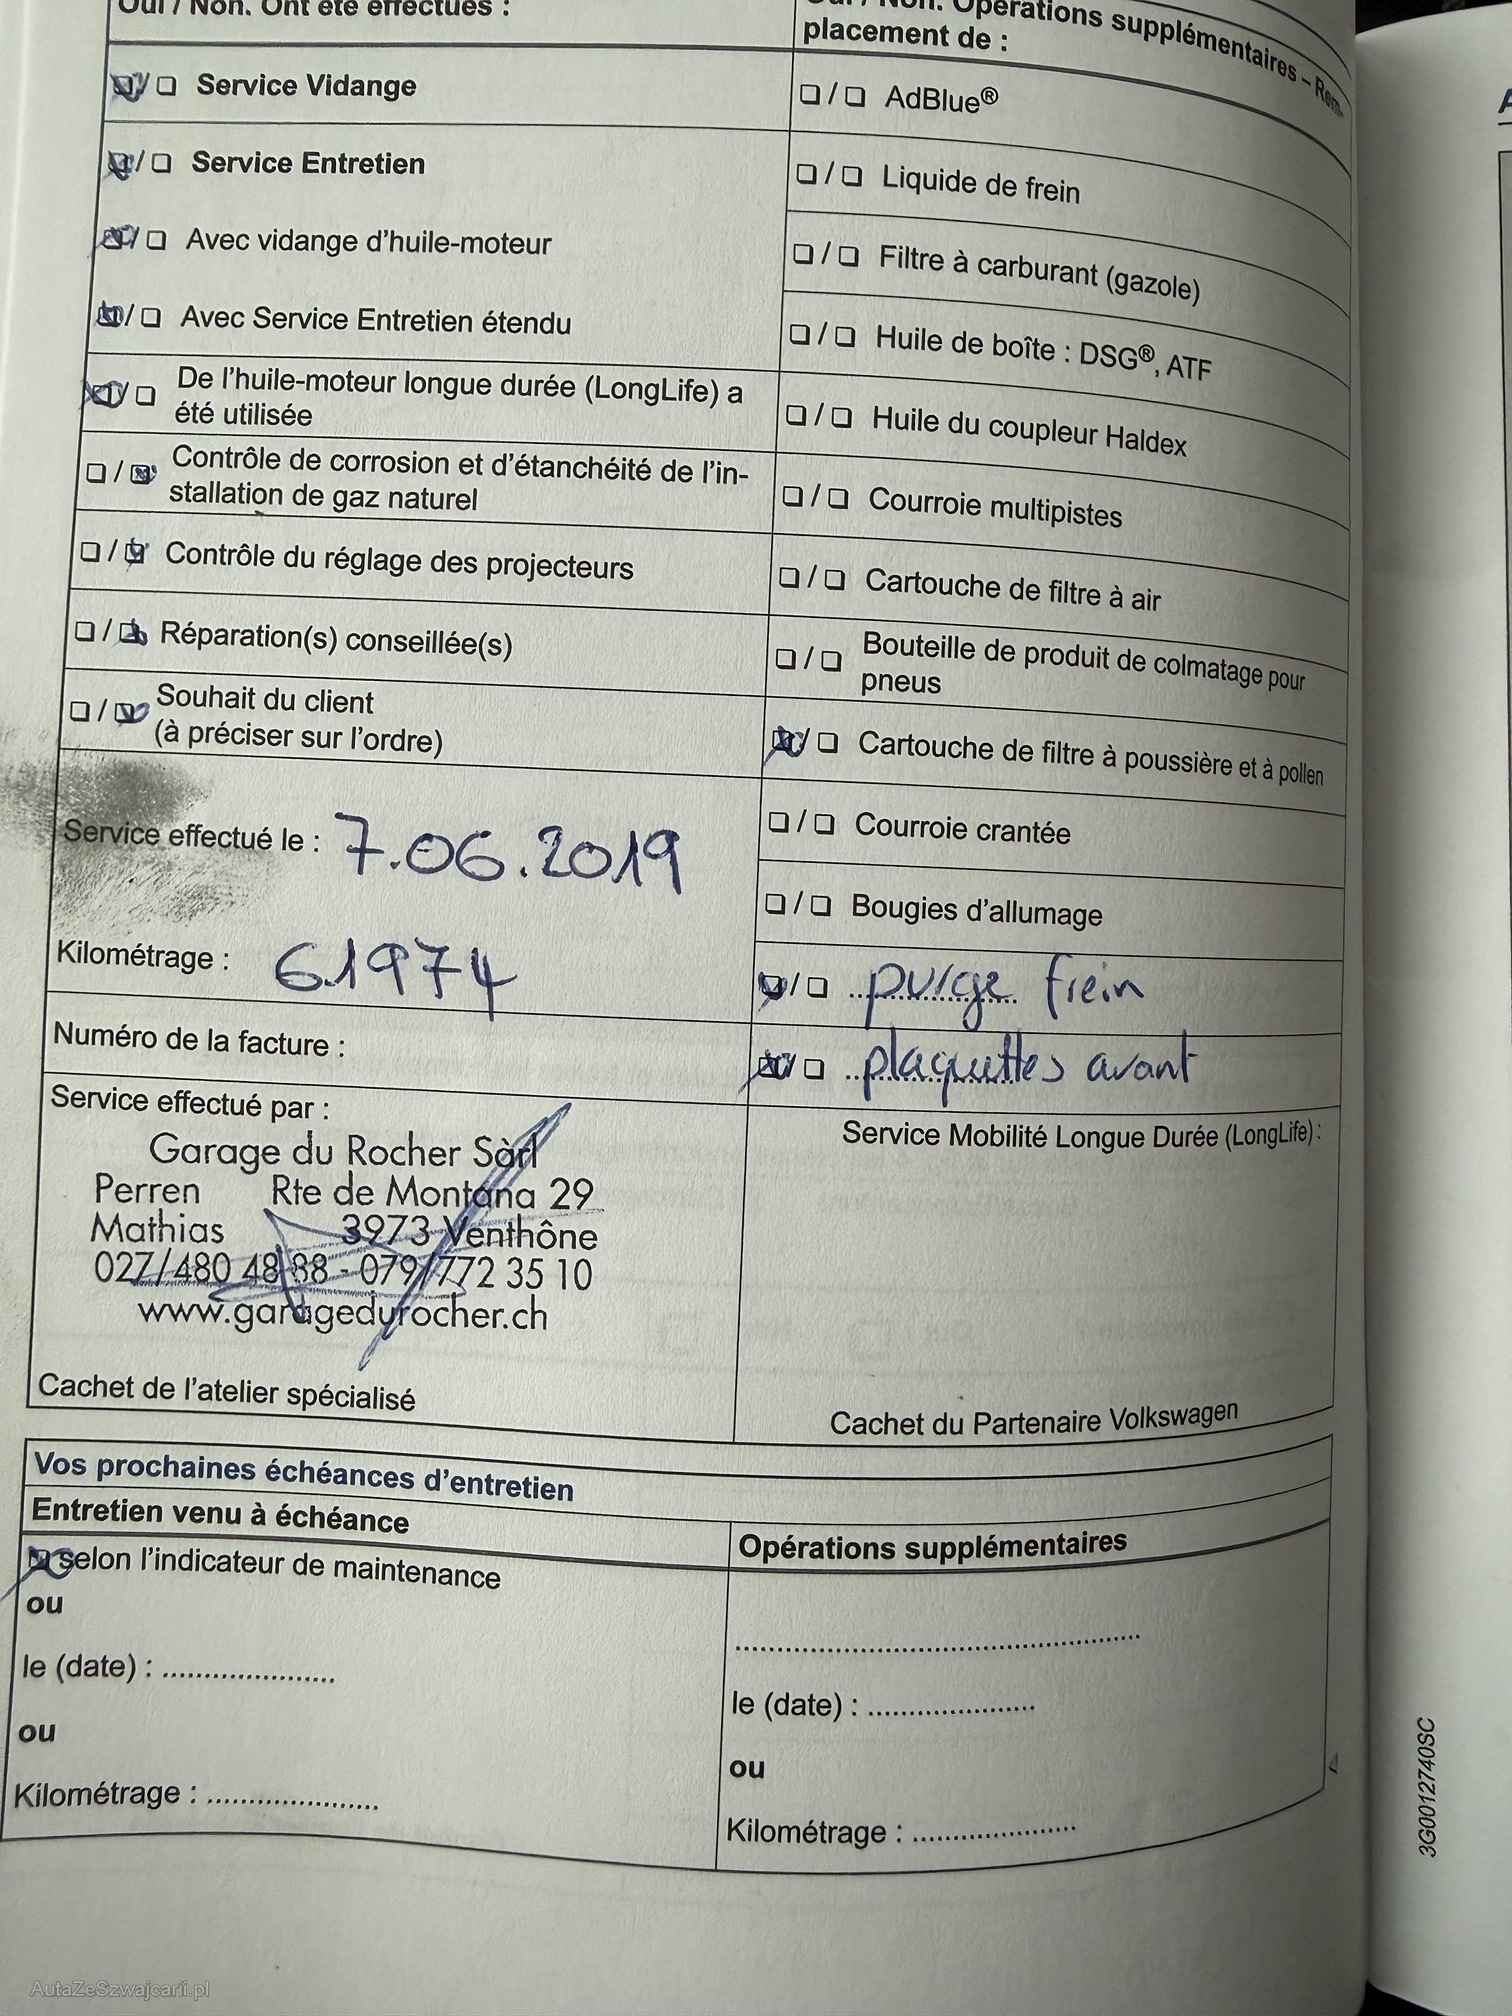 Oui / Non. Ont été effectués :
☒/☐ Service Vidange
☒/☐ Service Entretien
☒/☐ Avec vidange d'huile-moteur
☒/☐ Avec Service Entretien étendu
☒/☐ De l'huile-moteur longue durée (LongLife) a
été utilisée
☐/☒ Contrôle de corrosion et d'étanchéité de l'in-
stallation de gaz naturel
☐/☒ Contrôle du réglage des projecteurs
☐/☒ Réparation(s) conseillée(s)
☐/☒ Souhait du client
(à préciser sur l'ordre)
Service effectué le : 7.06.2019
Kilométrage : 61974
Numéro de la facture :
Service effectué par :
Garage du Rocher Sàrl
Perren Rte de Montana 29
Mathias 3973 Venthône
027/480 48 88 - 079/772 35 10
www.garagedurocher.ch
Cachet de l'atelier spécialisé
Oui / Non. Opérations supplémentaires – Rem-
placement de :
☐/☐ AdBlue®
☐/☐ Liquide de frein
☐/☐ Filtre à carburant (gazole)
☐/☐ Huile de boîte : DSG®, ATF
☐/☐ Huile du coupleur Haldex
☐/☐ Courroie multipistes
☐/☐ Cartouche de filtre à air
☐/☐ Bouteille de produit de colmatage pour
pneus
☒/☐ Cartouche de filtre à poussière et à pollen
☐/☐ Courroie crantée
☐/☐ Bougies d'allumage
☒/☐ purge frein
☒/☐ plaquettes avant
Service Mobilité Longue Durée (LongLife) :
Cachet du Partenaire Volkswagen
Vos prochaines échéances d'entretien
Entretien venu à échéance
☒ selon l'indicateur de maintenance
ou
le (date) : .....................
ou
Kilométrage : .....................
Opérations supplémentaires
..................................................
le (date) : .....................
ou
Kilométrage : .....................
3G0012740SC
AutaZeSzwajcarii.pl